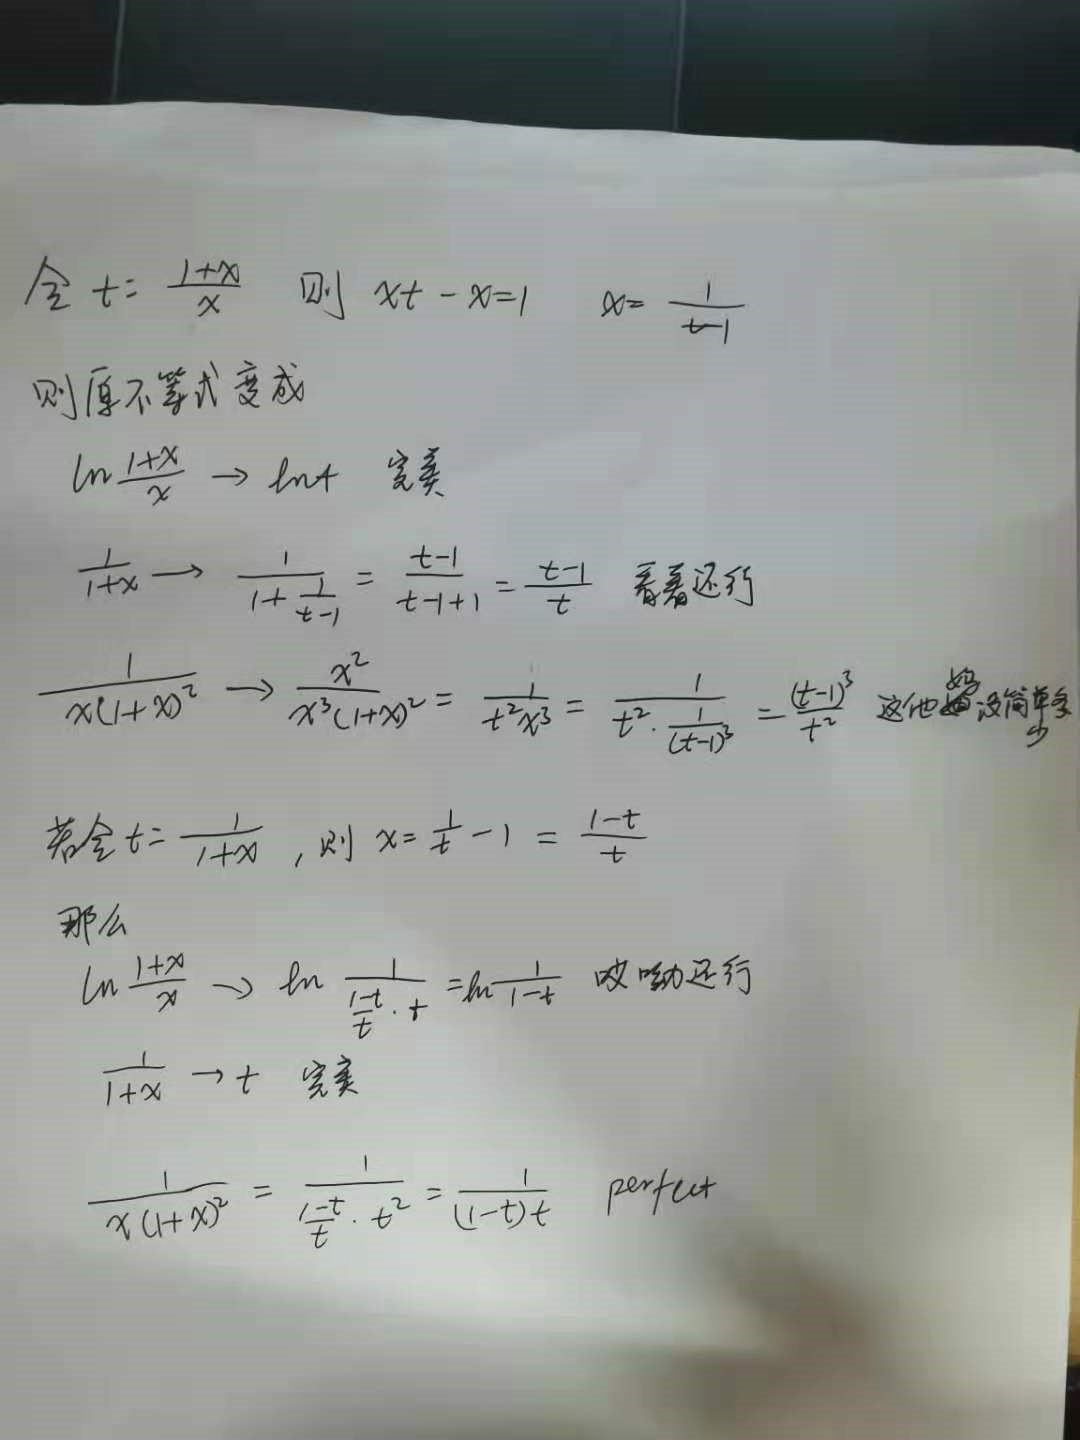 令 t = \frac{1+x}{x} 则 xt - x = 1 x = \frac{1}{t-1}
则原不等式变成
ln \frac{1+x}{x} → lnt 完美
\frac{1}{1+x} → \frac{1}{1+\frac{1}{t-1}} = \frac{t-1}{t-1+1} = \frac{t-1}{t} 看着还行
\frac{1}{x(1+x)^2} → \frac{x^2}{x^3(1+x)^2} = \frac{1}{t^2x^3} = \frac{1}{t^2 \cdot \frac{1}{(t-1)^3}} = \frac{(t-1)^3}{t^2} 这他妈没简单多少
若令 t = \frac{1}{1+x}, 则 x = \frac{1}{t} - 1 = \frac{1-t}{t}
那么
ln \frac{1+x}{x} → ln \frac{1}{\frac{1-t}{t} \cdot t} = ln \frac{1}{1-t} 哎呦还行
\frac{1}{1+x} → t 完美
\frac{1}{x(1+x)^2} = \frac{1}{\frac{1-t}{t} \cdot t^2} = \frac{1}{(1-t)t} perfect